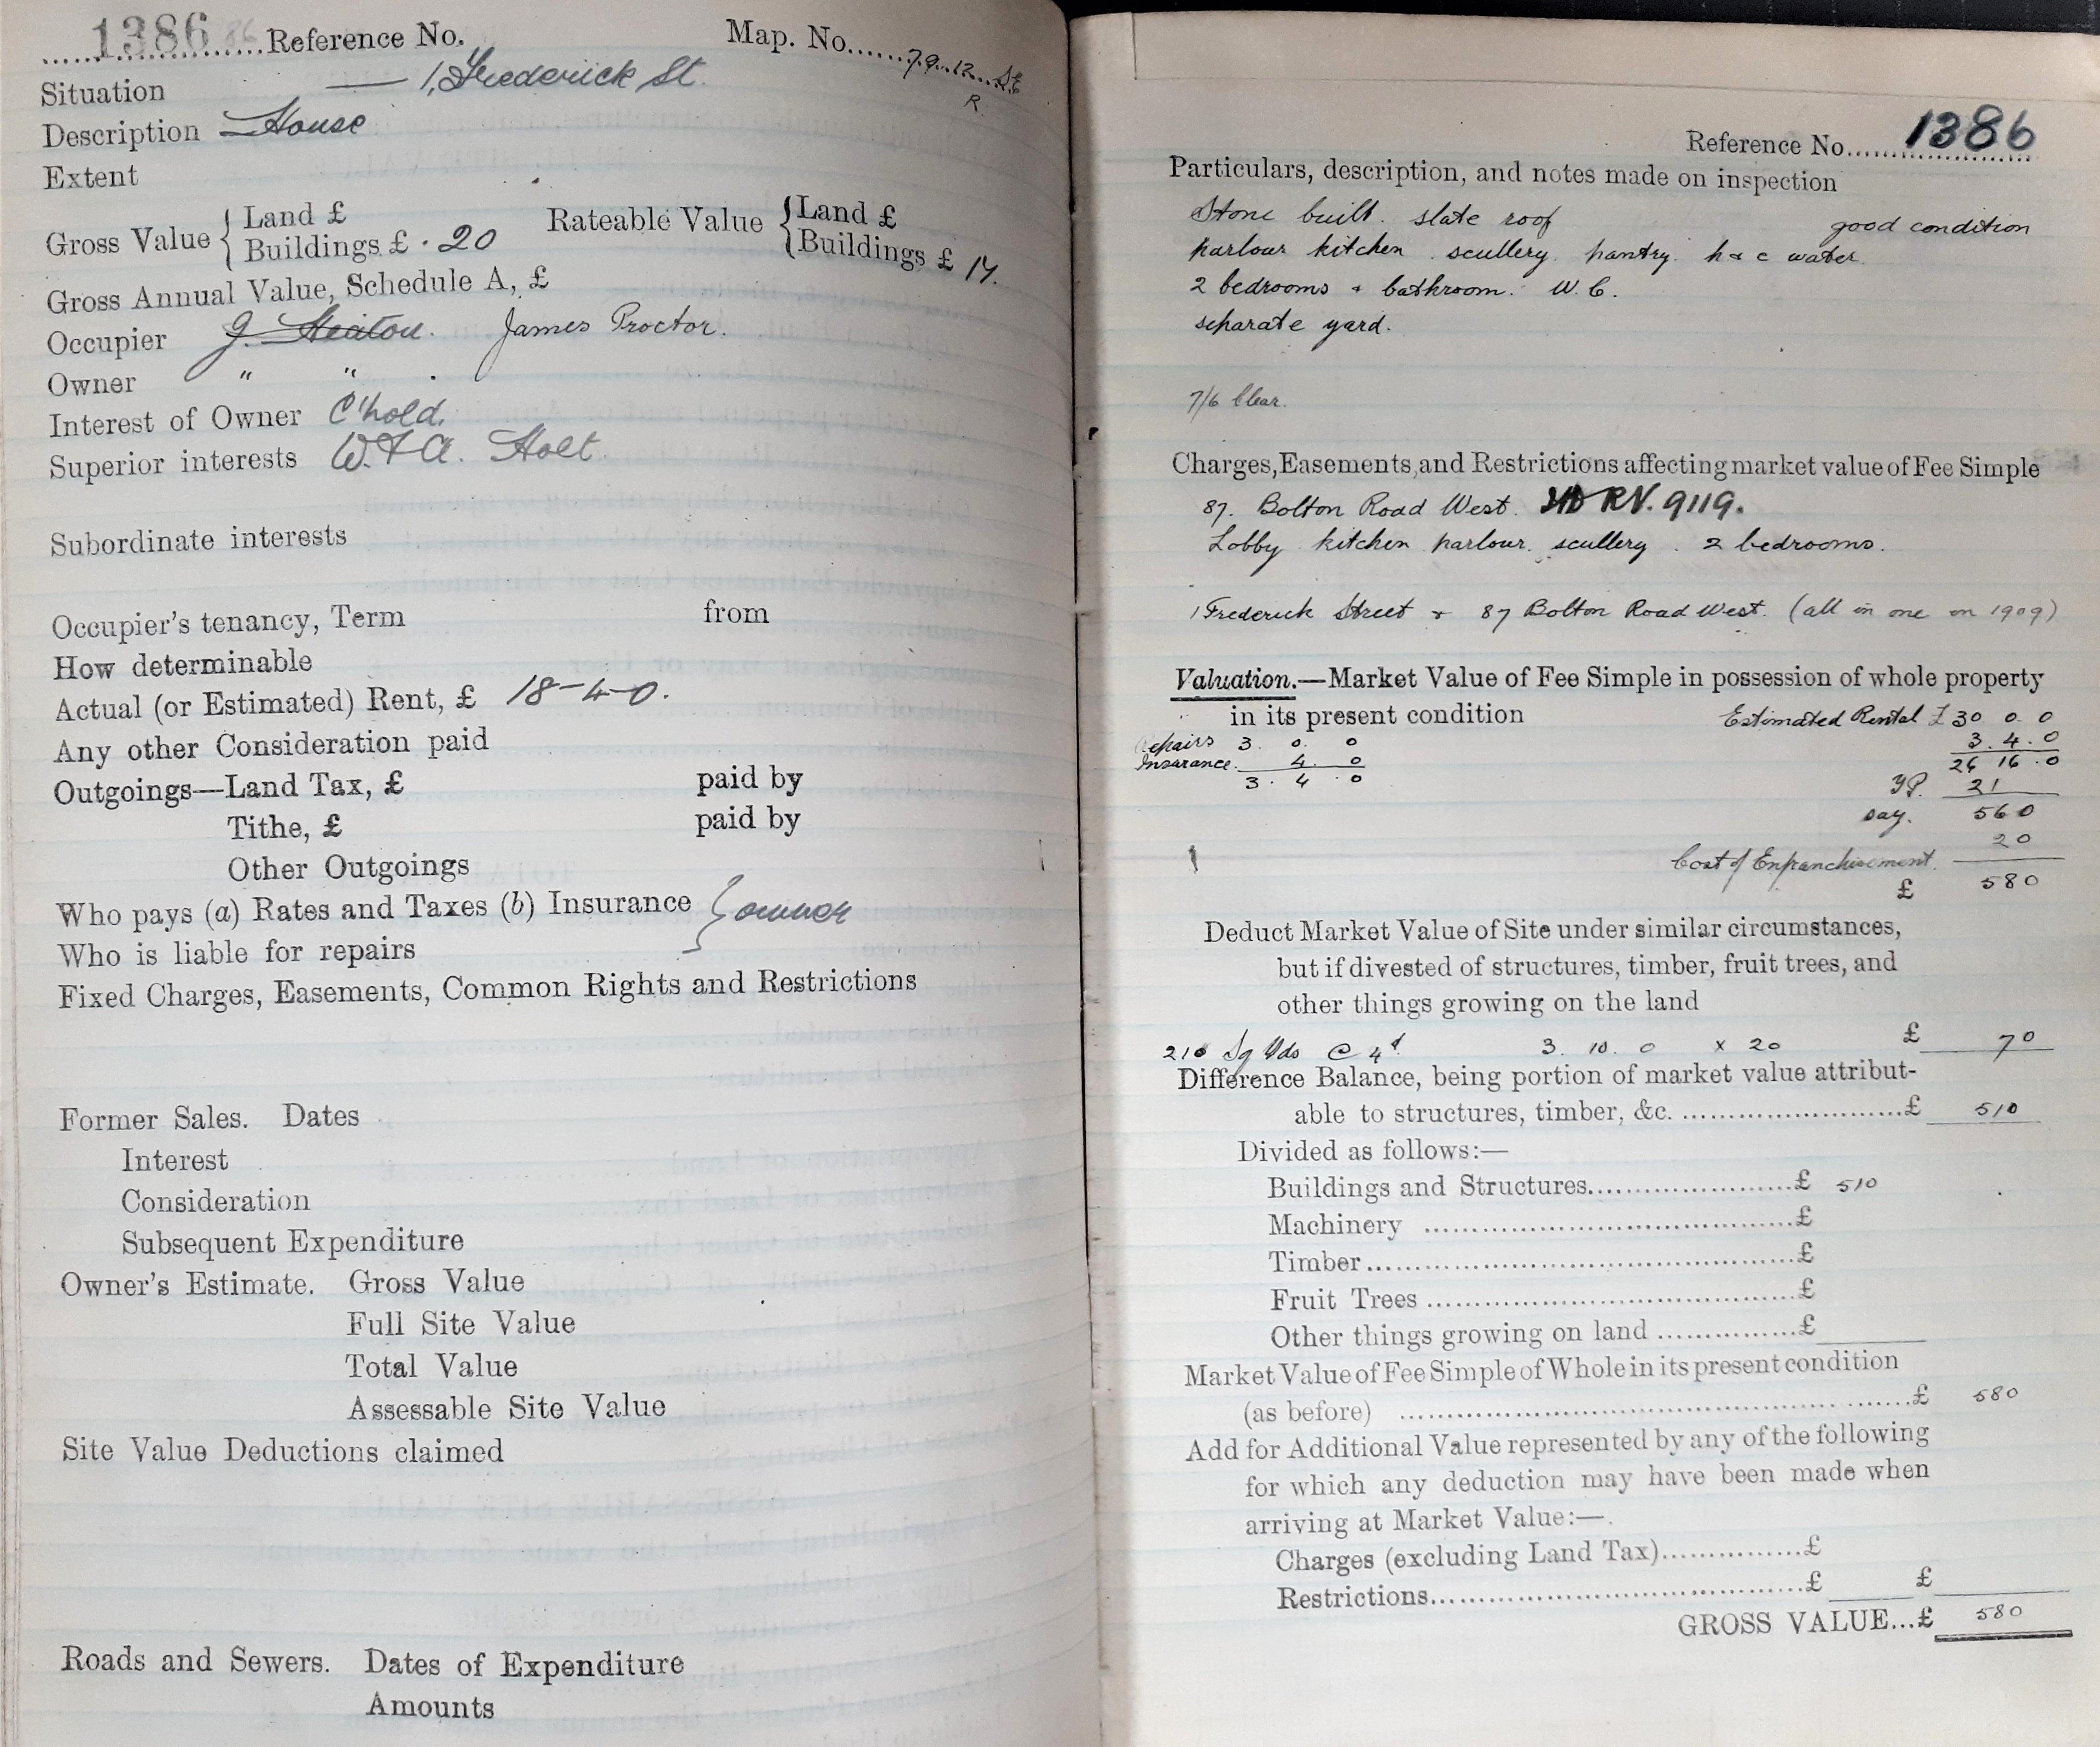 1386 Reference No. Map. No. 79.12. SE
R
Situation — 1, Frederick St.
Description House
Extent
Gross Value { Land £ Rateable Value { Land £
Buildings £ 20 Buildings £ 17.
Gross Annual Value, Schedule A, £
Occupier J. Heaton. James Proctor.
Owner " "
Interest of Owner C'hold.
Superior interests W. & A. Holt.
Subordinate interests
Occupier's tenancy, Term from
How determinable
Actual (or Estimated) Rent, £ 18-4-0.
Any other Consideration paid
Outgoings—Land Tax, £ paid by
Tithe, £ paid by
Other Outgoings
Who pays (a) Rates and Taxes (b) Insurance } owner
Who is liable for repairs
Fixed Charges, Easements, Common Rights and Restrictions
Former Sales. Dates
Interest
Consideration
Subsequent Expenditure
Owner's Estimate. Gross Value
Full Site Value
Total Value
Assessable Site Value
Site Value Deductions claimed
Roads and Sewers. Dates of Expenditure
Amounts
Reference No. 1386
Particulars, description, and notes made on inspection
Stone built. slate roof good condition
parlour kitchen. scullery. pantry. h & c water
2 bedrooms & bathroom. W.C.
separate yard.
7/6 Clear.
Charges, Easements, and Restrictions affecting market value of Fee Simple
87. Bolton Road West. RV. 9119.
Lobby kitchen parlour. scullery. 2 bedrooms.
1 Frederick Street & 87 Bolton Road West. (all in one in 1909)
Valuation.—Market Value of Fee Simple in possession of whole property
in its present condition Estimated Rental £ 30 0. 0
Repairs 3. 0. 0 3. 4. 0
Insurance. 4. 0 26 16. 0
3. 4. 0 YP. 21
say. 560
Cost of Enfranchisement. 20
£ 580
Deduct Market Value of Site under similar circumstances,
but if divested of structures, timber, fruit trees, and
other things growing on the land
210 Sq Yds @ 4d 3. 10. 0 x 20 £ 70
Difference Balance, being portion of market value attribut-
able to structures, timber, &c. £ 510
Divided as follows:—
Buildings and Structures £ 510
Machinery £
Timber £
Fruit Trees £
Other things growing on land £
Market Value of Fee Simple of Whole in its present condition
(as before) £ 580
Add for Additional Value represented by any of the following
for which any deduction may have been made when
arriving at Market Value:—
Charges (excluding Land Tax) £
Restrictions £ £
GROSS VALUE...£ 580